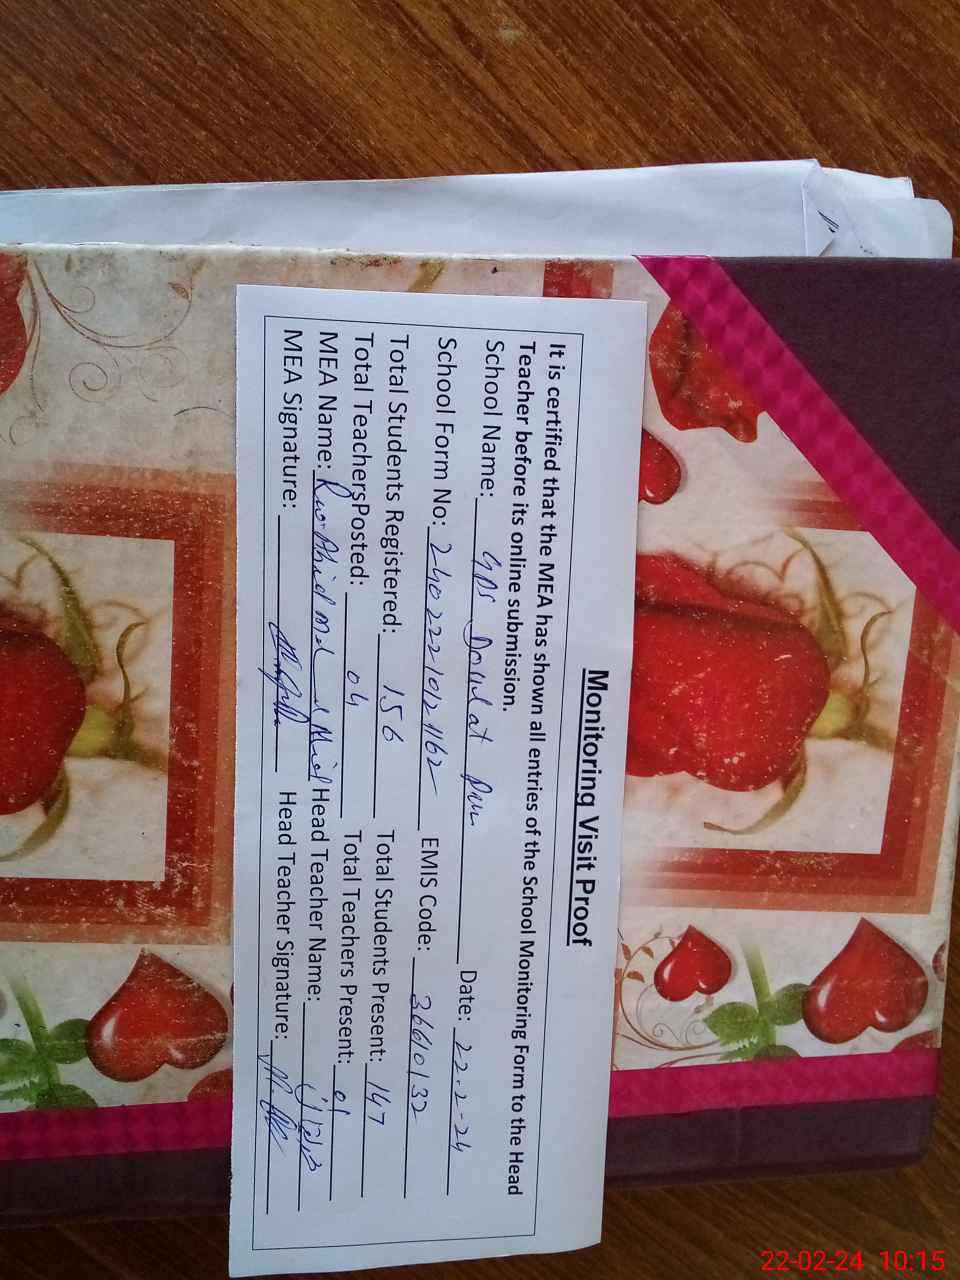 Monitoring Visit Proof
It is certified that the MEA has shown all entries of the School Monitoring Form to the Head
Teacher before its online submission.
School Name: GPS Doulat Pur Date: 22-2-24
School Form No: 2402221021162 EMIS Code: 36610132
Total Students Registered: 156 Total Students Present: 147
Total TeachersPosted: 04 Total Teachers Present: 01
MEA Name: Head Teacher Name:
MEA Signature: Head Teacher Signature:
22-02-24 10:15